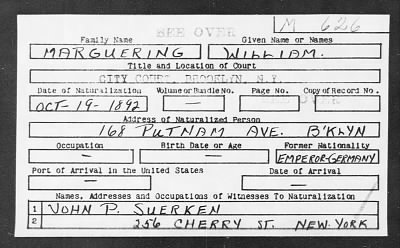 SEE OVER M 626
Family Name Given Name or Names
MARGUERING WILLIAM.
Title and Location of Court
CITY COURT, BROOKLYN, N.Y.
Date of Naturalization Volume or Bundle No. Page No. Copy of Record No.
SEE OVER
OCT-19-1892 — —
Address of Naturalized Person
168 PUTNAM AVE. B'KLYN
Occupation Birth Date or Age Former Nationality
— — EMPEROR-GERMANY
Port of Arrival in the United States Date of Arrival
— —
Names, Addresses and Occupations of Witnesses To Naturalization
1 JOHN P. SUERKEN
2 256 CHERRY ST. NEW-YORK